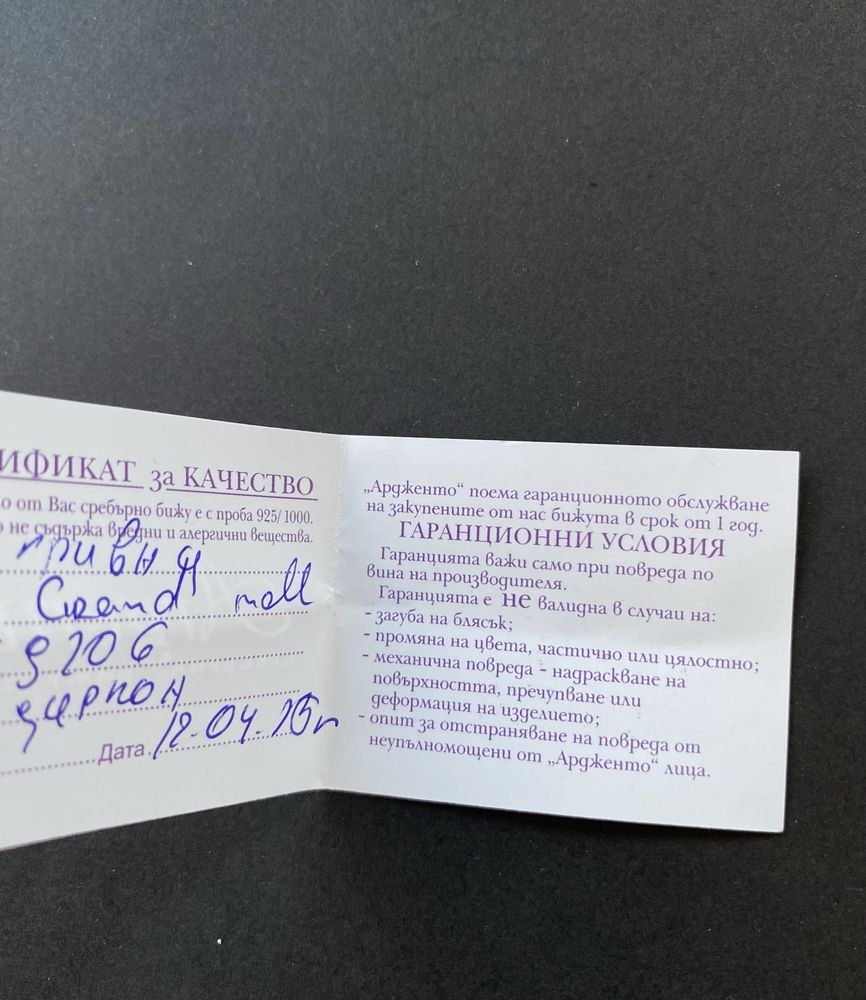 ИФИКАТ за КАЧЕСТВО
о от Вас сребърно бижу е с проба 925/1000.
о не съдържа вредни и алергични вещества.
гривна
Grand mall
9206
циркон
Дата 12.04.25г
„Ардженто“ поема гаранционното обслужване
на закупените от нас бижута в срок от 1 год.
ГАРАНЦИОННИ УСЛОВИЯ
Гаранцията важи само при повреда по
вина на производителя.
Гаранцията е не валидна в случаи на:
- загуба на блясък;
- промяна на цвета, частично или цялостно;
- механична повреда - надраскване на
повърхността, пречупване или
деформация на изделието;
- опит за отстраняване на повреда от
неупълномощени от „Ардженто“ лица.